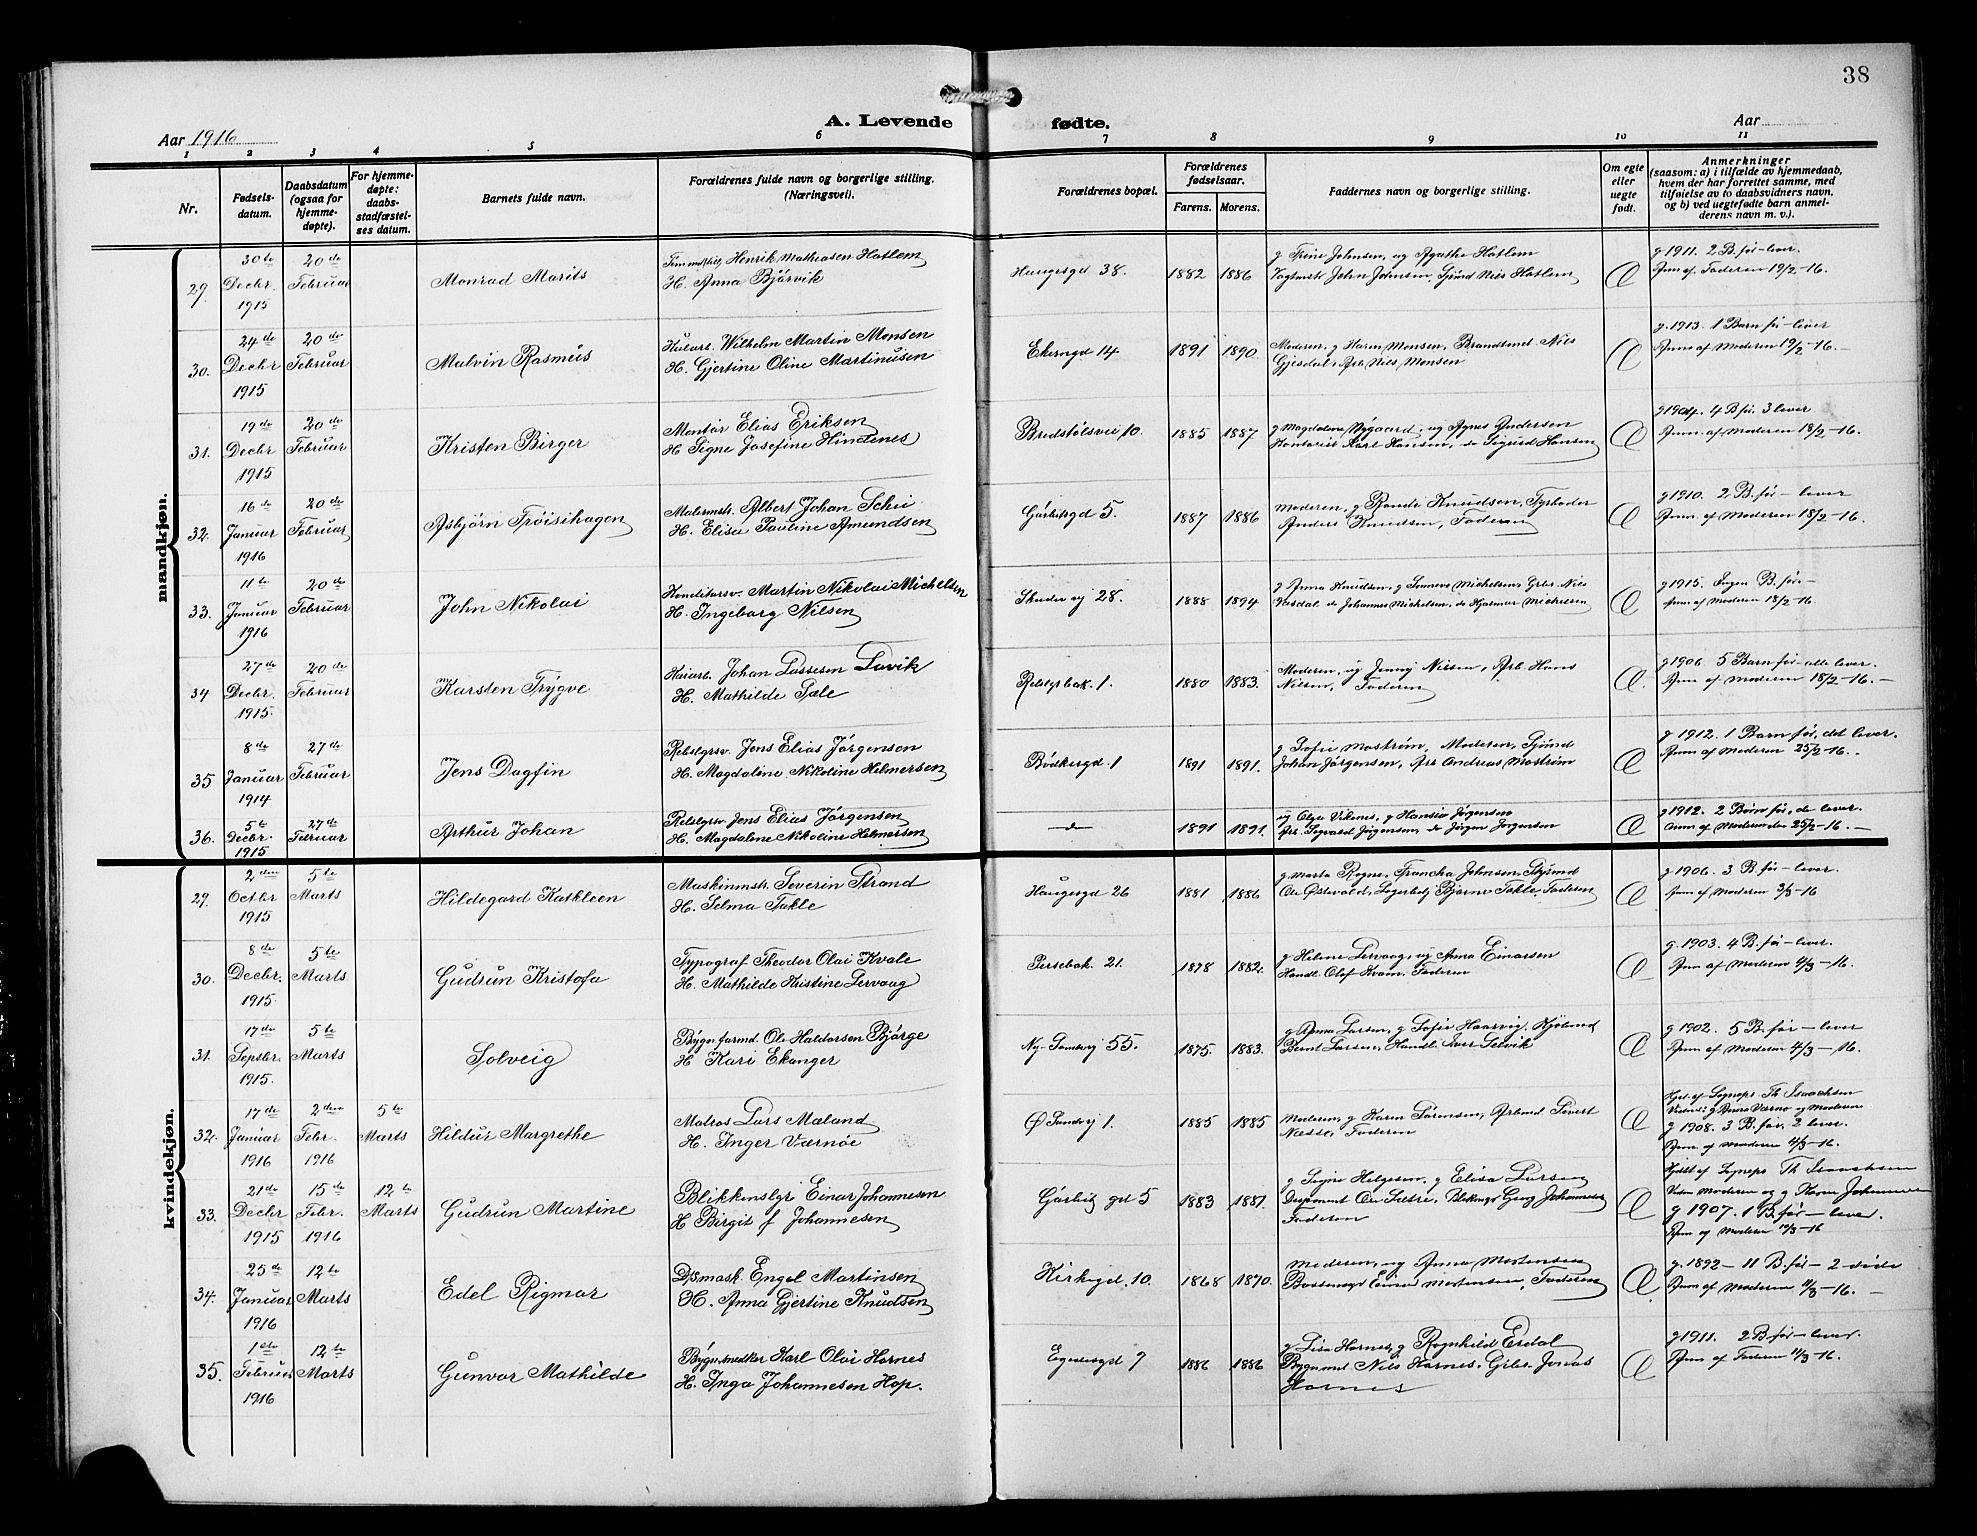 38
A. Levende fødte.
Aar 1916
Aar
1 2 3 4 5 6 7 8 9 10 11
Nr.
Fødsels-datum.
Daabsdatum (ogsaa for hjemme-døpte).
For hjemme-døpte: daabs-stadfæstel-ses datum.
Barnets fulde navn.
Forældrenes fulde navn og borgerlige stilling. (Næringsvei).
Forældrenes bopæl.
Forældrenes fødselsaar.
Farens. Morens.
Faddernes navn og borgerlige stilling.
Om egte eller uegte født.
Anmerkninger (saasom: a) i tilfælde av hjemmedaab, hvem der har forrettet samme, med tilføielse av to daabsvidners navn, og b) ved uegtefødte barn anmel-derens navn m. v.).
mandkjøn.
29. 30te Decbr. 1915 20de Februar Monrad Marits
Henrik Mathiasen Hatlem
H. Anna Bjørvik
Haugesgd 38. 1882 1886
g Trine Johnsen, ug Agathe Hatlem
Vogtmst. John Johnsen, Sjømd Nils Hatlem
g 1911. 2 B. før – lever.
Anm af Faderen 19/2-16.
30. 24de Decbr 1915 20de Februar Malvin Rasmus
Wilhelm Martin Monsen
H. Gjertine Oline Martinusen
Ekerngd 14 1891 1890
Moderen, g Haren Monsen, Brandtmd Nils
Gjesdal, Arb Nils Monsen
g. 1913. 1 Barn før – lever
Anm af Moderen 19/2-16.
31. 19de Decbr 1915 20de Februar Kristen Birger
Montør Elias Eriksen
H Signe Josefine Hindenes
Bredstølsvei 10. 1885 1887
g Magdalene Nygaard, ug Agnes Andersen
Kontorist Karl Hansen, do Sigurd Hansen
g 1904. 4 B før. 3 lever
Anm. af Moderen 18/2-16.
32. 16de Januar 1916 20de Februar Asbjørn Trøisihagen
Malermstr. Albert Johan Schei
H. Elisa Pauline Amundsen
Garbitsgd 5. 1887 1886
Moderen, g Rande Knudsen, Fyrbøder
Anders Knudsen, Faderen
g 1910. 2 B. før – lever
Anm. af Moderen 18/2-16.
33. 11te Januar 1916 20de Februar John Nikolai
Konditorsv. Martin Nikolai Michelsen
H. Ingeborg Nilsen
Skudevg 28. 1888 1894
g Anna Knudsen, g Sønneve Michelsen, Grbr. Nils
Vasdal do Johannes Michelsen, do Hjalmar Michelsen
g 1915. Ingen B. før. –
Anm af Moderen 18/2-16.
34 27de Decbr. 1915. 20de Februar Karsten Trygve
Johan Lassesen Lavik
H. Mathilde Sæle
Rebslgrbak. 1. 1880 1883.
Moderen, ug Jenny Nilsen, Arb Hans
Nilsen, Faderen
g 1906. 5 Barn før – alle lever.
Anm af Moderen 18/2-16. –
35 8de Januar 1914 27de Februar Jens Dagfin
Rebslgrsv. Jens Elias Jørgensen
H. Magdaline Nikoline Helmersen
Bødkergd. 1 1891 1891.
g Sofie Mostrøm, Moderen, Sjømd
Johan Jørgensen, Arb Andreas Mostrøm
g 1912. 1 Barn før, det lever.
Anm. af Moderen 25/2-16.
36. 5te Decbr. 1915 27de Februar Arthur Johan
Rebslgrsv. Jens Elias Jørgensen
H. Magdalene Nikoline Helmersen
do 1891 1891.
ug Olga Viknes, g Hansie Jørgensen
Arb. Sigvald Jørgensen, do Jørgen Jørgensen
g 1912. 2 Børn før, de lever.
Anm. af Moderen 25/2-16.
kvindekjøn.
29. 2den Octbr 1915 5te Marts Hildegard Kathleen
Maskinmstr. Severin Strand
H. Selma Takle
Haugesgd 26 1881 1886
g Marta Rogne, Francka Johnsen, Styrmd
Ole Østevold, Lagerbetj Bjarne Takle, Faderen
g 1906. 3 B. før – lever
Anm af Moderen 3/3-16
30. 8de Decbr. 1915. 5te Marts Gudrun Kristofa
Typograf Theodor Olai Kvale
H. Mathilde Kristine Lervaag
Persebak. 21. 1878 1882.
g Helene Lervaag, ug Anna Einarsen
Handl. Olaf Kvam, Faderen
g. 1903. 4 B. før – lever.
Anm af Moderen 4/3-16.
31. 17de Septbr. 1915. 5te Marts Solveig
Bygn.formd. Ole Haldorsen Bjørge
H Kari Ekanger
Ny-Sandvg 55. 1875. 1883.
g Anna Larsen, g Sofie Haarvig, Kjølmd
Bernt Larsen, Handl. Iver Selvik
g 1902. 5 B. før – lever
Anm af Moderen 4/3-16.
32. 17de Januar 1916 2den Febr. 1916 5te Marts Hildur Margrethe
Matros Lars Maland
H. Inger Værnøe
Ø Sandvg 1. 1885 1885
Moderen, g Karen Sørensen, Arbmd Sivert
Næsse, Faderen
Hjd. af Sognepr Th Isaachsen
Vidner: g Anna Værnø og Moderen
g 1908. 3 B. før. 2 lever.
Anm. af Moderen 4/3-16.
33. 21de Decbr 1915 15de Febr. 1916 12te Marts Gudrun Martine
Blikkenslgr Einar Johannesen
H Birgit f Johannesen
Garbitz gd 5 1883 1881.
g Signe Helgesen, g Elisa Larsen
Disponent Ole Sætre, Blikksgr Georg Johannesen
Faderen
Hjdbt af Sognepr Th Isaachsen
Vidn Moderen og g Karen Johannesen
g 1907. 1 B. før – lever.
Anm af Moderen 10/3-16
34. 25de Januar 1916 12te Marts Edel Rigmor
Engel Martinsen
H. Anna Gjertine Knudsen
Kirkegd. 10. 1868 1870.
Moderen, ug Anna Mortensen
Bossmegl Einar Mortensen, Faderen
g. 1892 – 11 B. før – 2 døde
Anm af Moderen 11/3-16.
35. 1ste Februar 1916 12te Marts Gunvor Mathilde
Bygn.snedker Karl Olai Hornes
H. Inga Johannesen Hop.
Egedesgd 7 1886 1886
g Lisa Hornes, g Ragnhild Erdal
Bygnmd Nils Harnes, Grbr. Jonas
Hornes
g 1911. 2 B. før – lever.
Anm af Faderen 11/3-16.